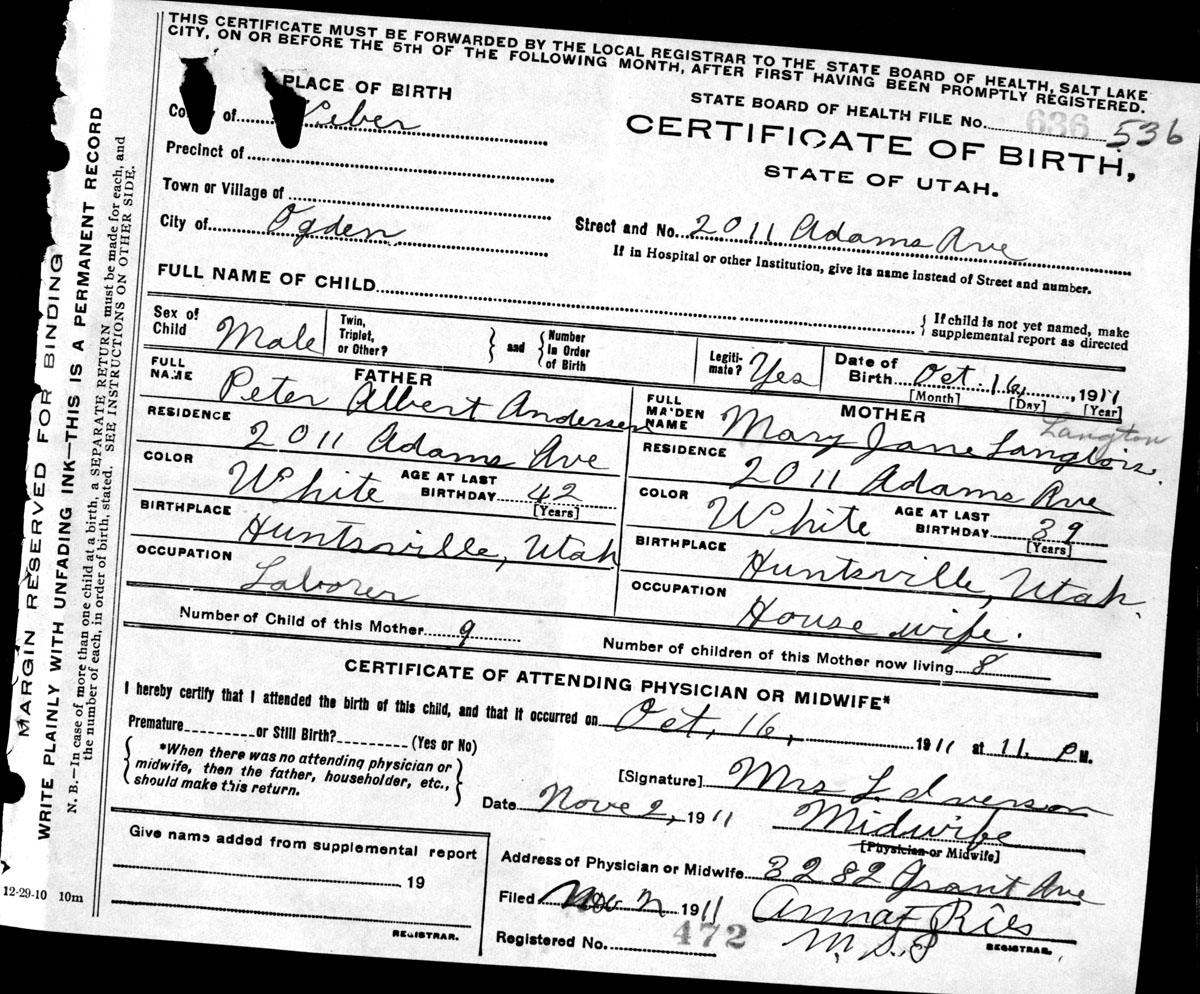 THIS CERTIFICATE MUST BE FORWARDED BY THE LOCAL REGISTRAR TO THE STATE BOARD OF HEALTH, SALT LAKE
CITY, ON OR BEFORE THE 5TH OF THE FOLLOWING MONTH, AFTER FIRST HAVING BEEN PROMPTLY REGISTERED.
PLACE OF BIRTH
STATE BOARD OF HEALTH FILE No. 636 536
of Weber
CERTIFICATE OF BIRTH,
STATE OF UTAH.
Precinct of
Town or Village of
City of Ogden
Street and No. 2011 Adams Ave
If in Hospital or other Institution, give its name instead of Street and number.
FULL NAME OF CHILD
If child is not yet named, make
supplemental report as directed
Sex of
Child Male
Twin,
Triplet,
or Other?
and
Number
In Order
of Birth
Legiti-
mate? Yes
Date of
Birth Oct. 16, 1911
[Month] [Day] [Year]
FATHER
FULL
NAME Peter Albert Andersen
RESIDENCE
2011 Adams Ave
COLOR
White
AGE AT LAST
BIRTHDAY 42
[Years]
BIRTHPLACE
Huntsville, Utah
OCCUPATION
Laborer
MOTHER
FULL
MAIDEN
NAME Mary Jane Langlois.
Langton
RESIDENCE
2011 Adams Ave
COLOR
White
AGE AT LAST
BIRTHDAY 39
[Years]
BIRTHPLACE
Huntsville, Utah.
OCCUPATION
House wife.
Number of Child of this Mother 9
Number of children of this Mother now living 8
CERTIFICATE OF ATTENDING PHYSICIAN OR MIDWIFE*
I hereby certify that I attended the birth of this child, and that it occurred on Oct, 16, 1911 at 11. P M.
Premature or Still Birth? (Yes or No)
*When there was no attending physician or
midwife, then the father, householder, etc.,
should make this return.
[Signature] Mrs L. Iverson
Date Nove 2, 1911 Midwife
[Physician or Midwife]
Give name added from supplemental report
19
REGISTRAR.
Address of Physician or Midwife 3282 Grant Ave
Filed 1911 Anna F Ries
Registered No. 472
REGISTRAR.
MARGIN RESERVED FOR BINDING
WRITE PLAINLY WITH UNFADING INK—THIS IS A PERMANENT RECORD
N. B.—In case of more than one child at a birth, a SEPARATE RETURN must be made for each, and
the number of each, in order of birth, stated. SEE INSTRUCTIONS ON OTHER SIDE.
12-29-10 10m